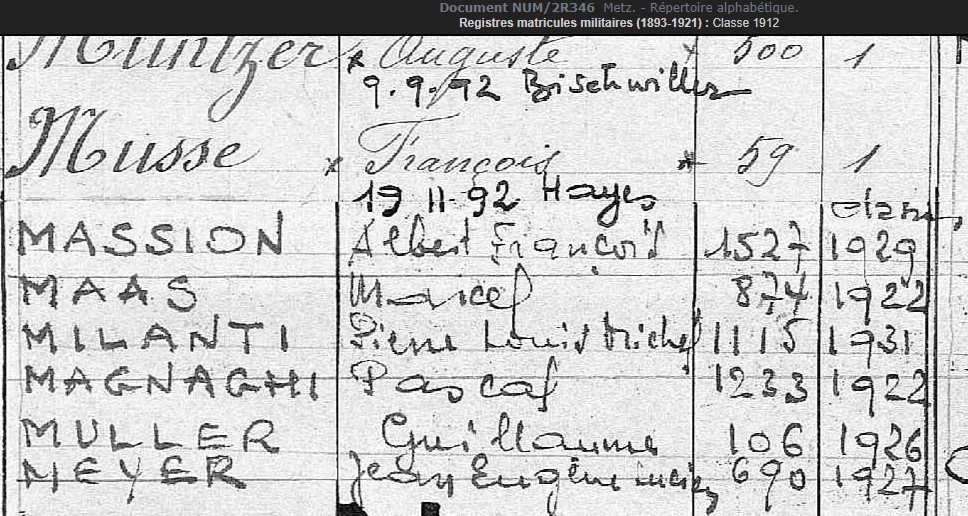 Document NUM/2R346 Metz. - Répertoire alphabétique.
Registres matricules militaires (1893-1921) : Classe 1912
Muntzer x Auguste x 500 1
9.9.92 Bischwiller
Musse x François x 59 1
19 11.92 Hayes
classe
MASSION Albert François 1527 1929
MAAS Marcel 874 1922
MILANTI Pierre Louis Michel 1115 1931
MAGNAGHI Pascal 1233 1922
MULLER Guillaume 106 1926
MEYER Jean Eugène Lucien 690 1927